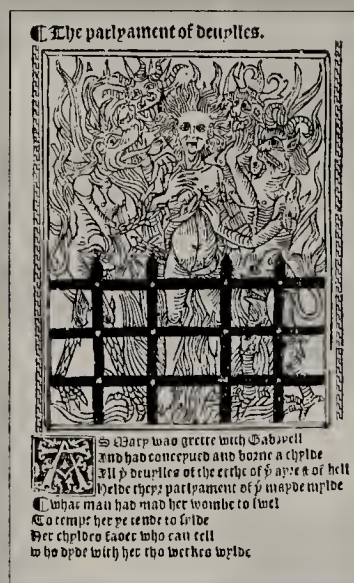 ¶ The parlyament of deuylles.
A
AS Mary was grette with Gabryell
And had conceyued and borne a chylde
All þͤ deuylles of the erthe of þͤ ayre & of hell
Helde theyr parlyament of þͤ mayde mylde
¶ What man had mad her wombe to swel
To tempt her þe tende to fylde
Her chyldes fader who can tell
Who dyde with her tho werkes wylde